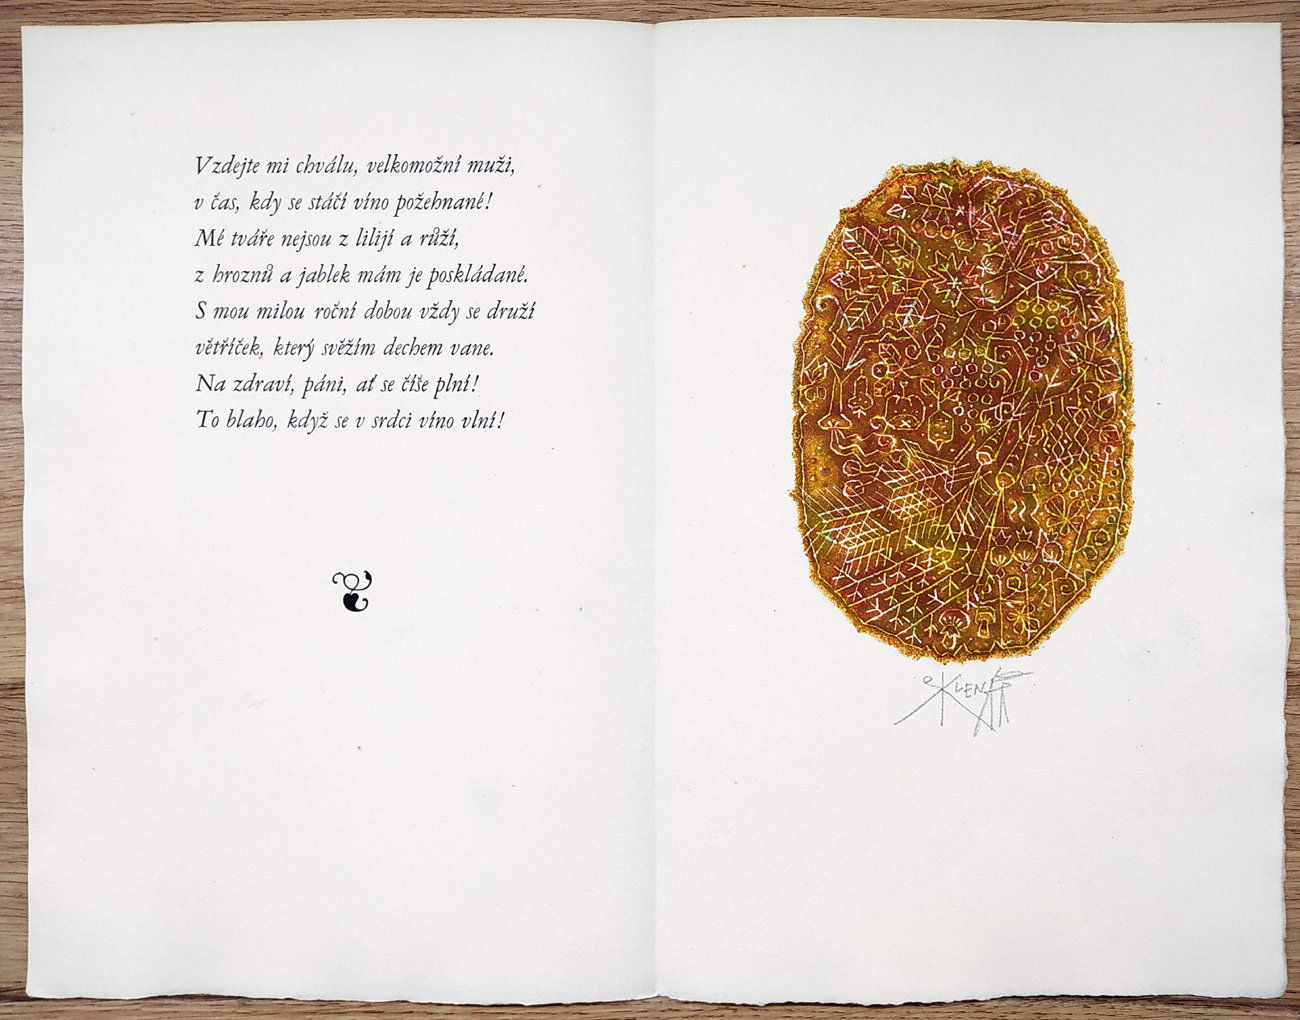 Vzdejte mi chválu, velkomožní muži,
v čas, kdy se stáčí víno požehnané!
Mé tváře nejsou z lilijí a růží,
z hroznů a jablek mám je poskládané.
S mou milou roční dobou vždy se druží
větříček, který svěžím dechem vane.
Na zdraví, páni, ať se číše plní!
To blaho, když se v srdci víno vlní!